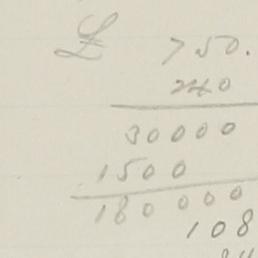 £ 750.
240
30000
1500
180000
108